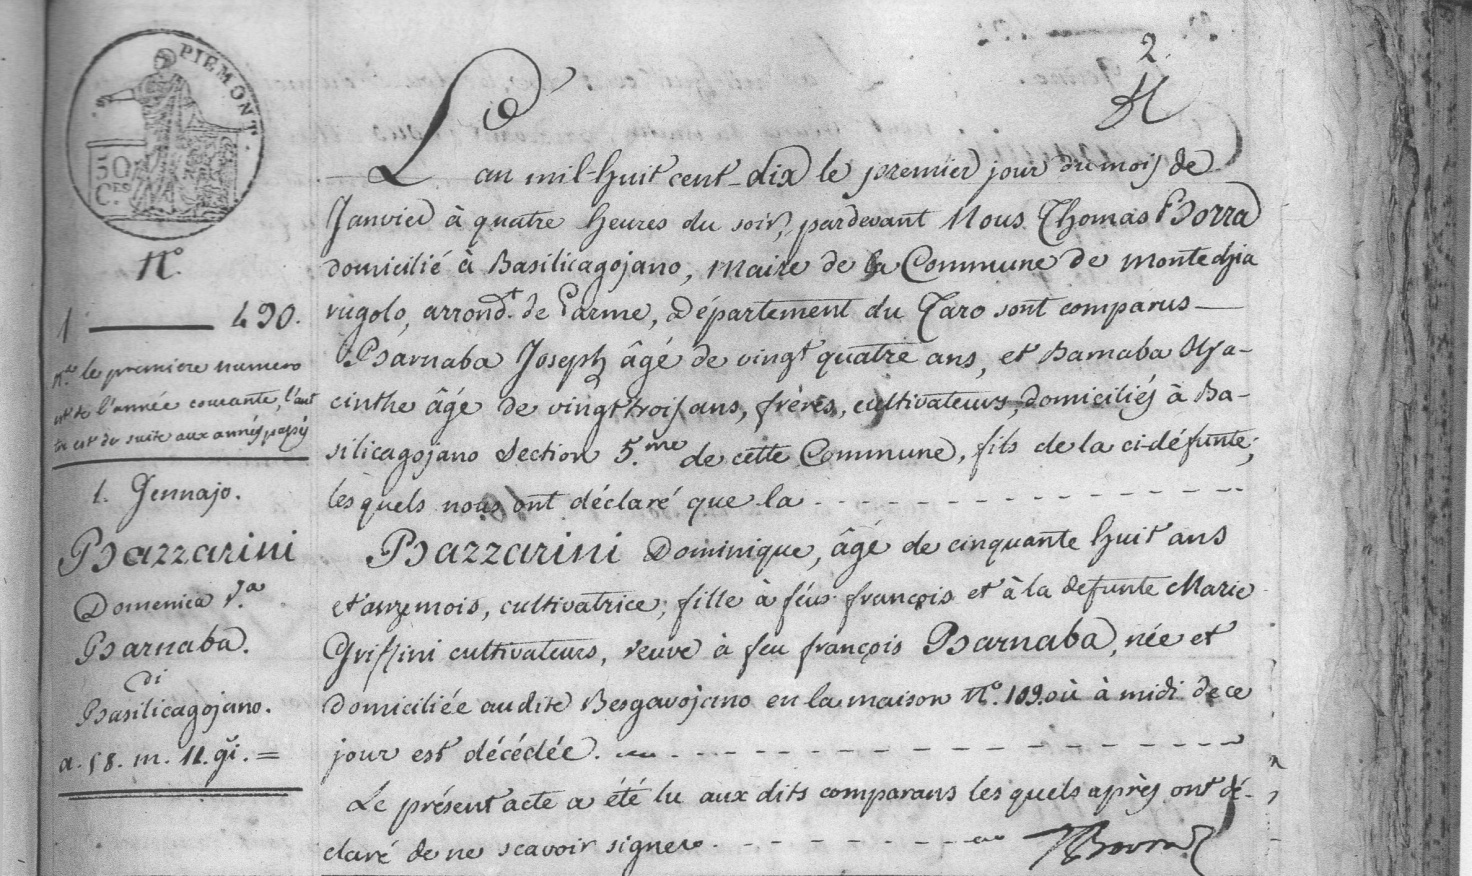 PIEMONT.
50
C.ES
2.
N.o
1 ——— 490.
N.o le premiere numero
est de l'année courante, l'aut
re est de suite aux années passés
1. Gennajo.
Bazzarini
Domenica V.a
Barnaba.
di
Basilicagojano.
a. 58. m. 11. gi. =
L'an mil-huit cent-dix le premier jour du mois de
Janvier à quatre heures du soir, pardevant Nous Thomas Borra
domicilié à Basilicagojano, Maire de la Commune de montechia
rugolo, arrond.t de Parme, Département du Taro sont comparus —
Barnaba Joseph âgé de vingt quatre ans, et Barnaba Hya-
cinthe âgé de vingt trois ans, frères, cultivateurs, domiciliés à Ba-
silicagojano Section 5.me de cette Commune, fils de la ci défunte;
les quels nous ont déclaré que la
Bazzarini Dominique, âgé de cinquante huit ans
et onze mois, cultivatrice; fille à feu françois et à la defunte Marie
Griffini cultivateurs, veuve à feu françois Barnaba, née et
domiciliée au dite Besgavojano en la maison N.o 109. où à midi de ce
jour est décédée.
Le présent acte a été lu aux dits comparans les quels après ont dé-
claré de ne scavoir signer. TBorra